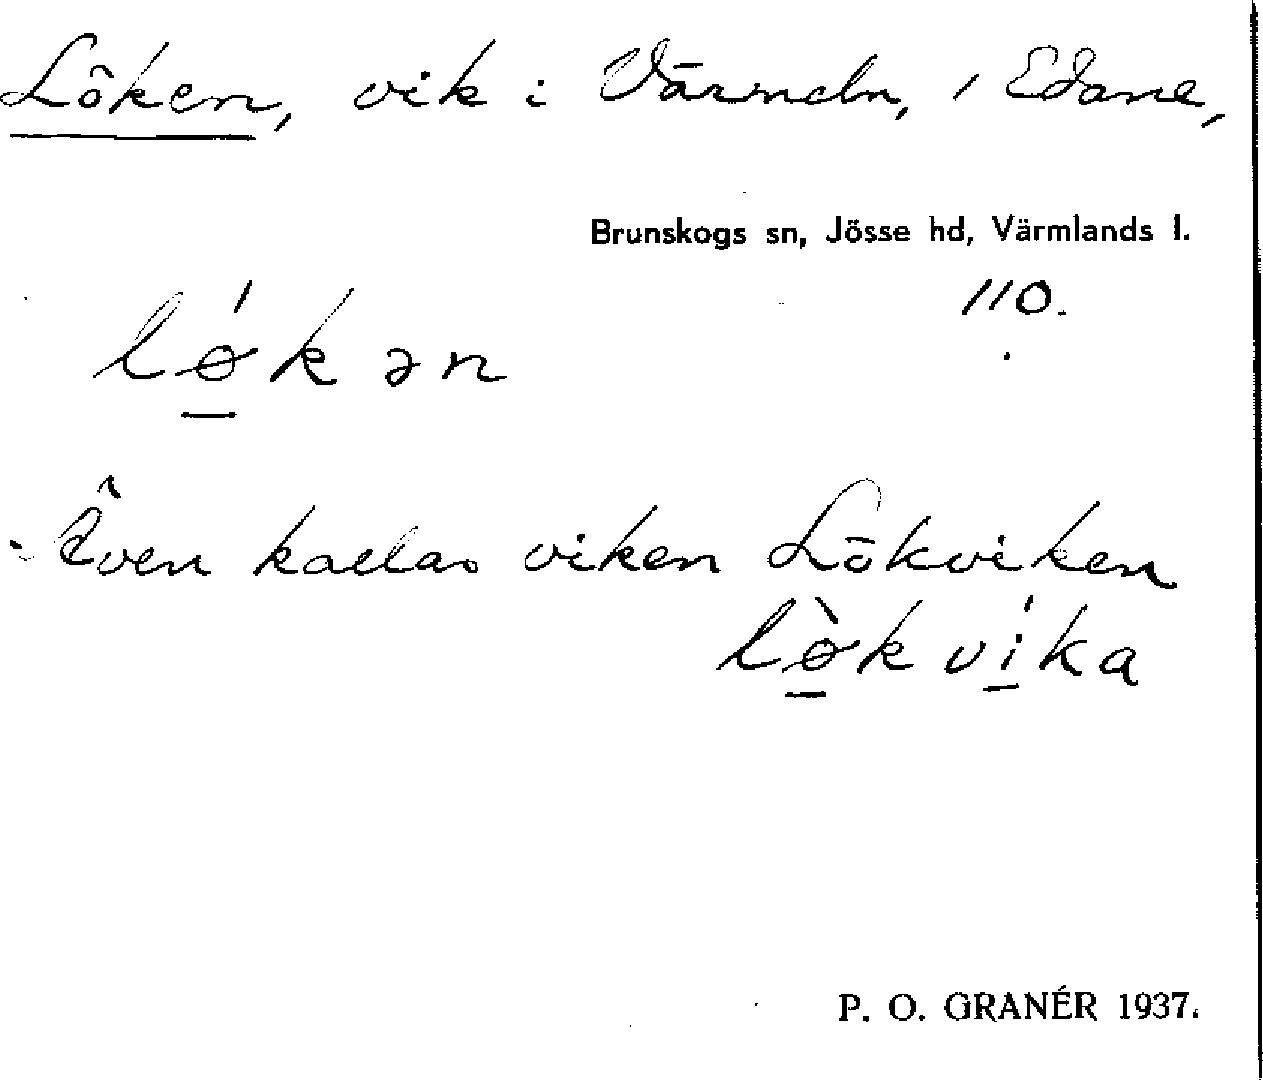 Löken, vik i Värmeln, i Edane,
Brunskogs sn, Jösse hd, Värmlands l.
110.
lǿkən
Även kallas viken Lökviken
lø̀kvíka
P. O. GRANÉR 1937.